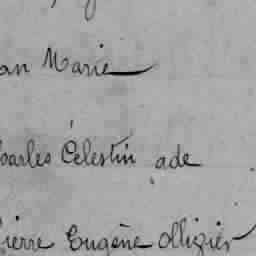 an Marie
harles Célestin ade
ierre Eugène Ollivier